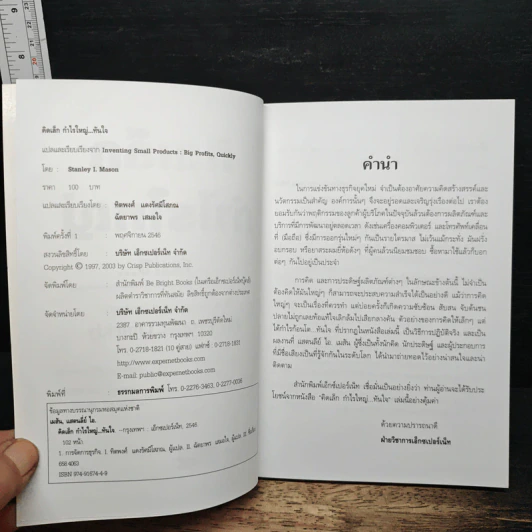 คิดเล็ก กำไรใหญ่...ทันใจ
แปลและเรียบเรียงจาก Inventing Small Products : Big Profits, Quickly
โดย : Stanley I. Mason
ราคา 100 บาท
แปลและเรียบเรียงโดย : ทิตพงศ์ แดงรัศมีโสภณ
ฉัตยาพร เสมอใจ
พิมพ์ครั้งที่ 1 : พฤศจิกายน 2546
สงวนลิขสิทธิ์โดย : บริษัท เอ็กซเปอร์เน็ท จำกัด
Copyright © 1997, 2003 by Crisp Publications, Inc.
จัดพิมพ์โดย : สำนักพิมพ์ Be Bright Books
จัดจำหน่ายโดย : บริษัท เอ็กซเปอร์เน็ท จำกัด
2387 อาคารรวมทุนพัฒนา ถ.เพชรบุรีตัดใหม่
บางกะปิ ห้วยขวาง กรุงเทพฯ 10320
โทร. 0-2718-1821 (10 คู่สาย) แฟกซ์ 0-2718-1831
http://www.expernetbooks.com
E-mail: public@expernetbooks.com
พิมพ์ที่ : ธรรกมลการพิมพ์ โทร. 0-2276-3463, 0-2277-0028
ข้อมูลทางบรรณานุกรมหอสมุดแห่งชาติ
เมสัน, แสตนลีย์ ไอ.
คิดเล็ก กำไรใหญ่...ทันใจ --กรุงเทพฯ : เอ็กซเปอร์เน็ท, 2546.
102 หน้า
1. การจัดการธุรกิจ. I. ทิตพงศ์ แดงรัศมีโสภณ, ผู้แปล. II. ฉัตยาพร เสมอใจ, ผู้แปล. III. ชื่อเรื่อง
658.4063
คำนำ
ในการแข่งขันทางธุรกิจยุคใหม่ จำเป็นต้องอาศัยความคิดสร้างสรรค์และ
นวัตกรรมเป็นสำคัญ องค์การนั้นๆ จึงจะอยู่รอดและเจริญรุ่งเรืองต่อไป เราต้อง
ยอมรับกันว่าพฤติกรรมของลูกค้าผู้บริโภคในปัจจุบันล้วนต้องการผลิตภัณฑ์และ
บริการที่มีการพัฒนาอยู่ตลอดเวลา ดังเช่นเครื่องคอมพิวเตอร์ และโทรศัพท์เคลื่อน
ที่ (มือถือ) ซึ่งมีการออกรุ่นใหม่ๆ กันเป็นรายไตรมาส ไม่เว้นแม้กระทั่ง มันฝรั่ง
อบกรอบ หรือยาสระผมยี่ห้อดังๆ ที่ผู้คนล้วนนิยมชมชอบ ซื้อหามาใช้แล้วก็บอก
ต่อๆ กันไปอยู่เป็นประจำ
การคิด และการประดิษฐ์ผลิตภัณฑ์ต่างๆ ในลักษณะข้างต้นนี้ ไม่จำเป็น
ต้องคิดให้มันใหญ่ๆ ก็สามารถจะประสบความสำเร็จได้เป็นอย่างดี แม้ว่าการคิด
ใหญ่ๆ จะเป็นเรื่องที่ควรทำ แต่บ่อยครั้งก็เกิดความซับซ้อน สับสน จับต้นชน
ปลายไม่ถูกเลยท้อแท้ใจเลิกล้มไปเสียกลางคัน ตัวอย่างของการคิดให้เล็กๆ แต่
ได้กำไรก้อนโต..ทันใจ ที่ปรากฏในหนังสือเล่มนี้ เป็นวิธีการปฏิบัติจริง และเป็น
ผลงานที่ แสตนลีย์ ไอ. เมสัน ผู้ซึ่งเป็นทั้งนักคิด นักประดิษฐ์ และผู้ประกอบการ
ที่มีชื่อเสียงเป็นที่รู้จักกันในระดับโลก ได้นำมาถ่ายทอดไว้อย่างน่าสนใจและน่า
ติดตาม
สำนักพิมพ์เอ็กซ์เปอร์เน็ท เชื่อมั่นเป็นอย่างยิ่งว่า ท่านผู้อ่านจะได้รับประ
โยชน์จากหนังสือ "คิดเล็ก กำไรใหญ่...ทันใจ" เล่มนี้อย่างคุ้มค่า
ด้วยความปรารถนาดี
ฝ่ายวิชาการเอ็กซเปอร์เน็ท